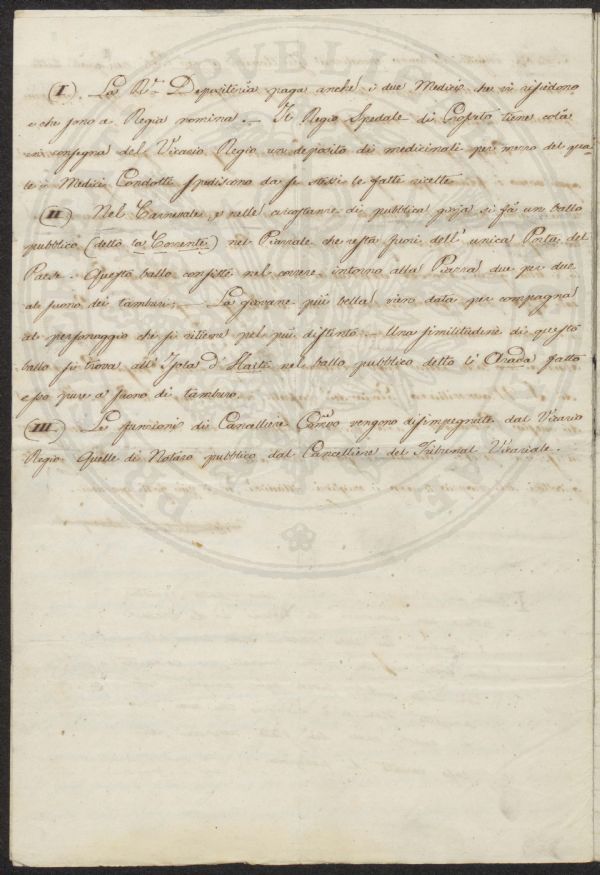 (I). La R.ᵃ Depositeria paga anche i due Medici, che vi risiedono
e che sono a Regia nomina. — Il Regio Spedale di Grosseto tiene colà
in consegna del Vicario Regio un deposito di medicinali per mezzo del qua=
le i Medici Condotti spediscono da se stessi le fatte ricette.
(II) Nel Carnevale, e nelle circostanze di pubblica gioja si fà un ballo
pubblico (detto la Corrente) nel Piazzale che resta fuori dell' unica Porta del
Paese. Questo ballo consiste nel correre intorno alla Piazza due per due
al suono dei tamburi; — La giovane più bella vien data per compagna
al personaggio che si ritiene pel più distinto. — Una similitudine di questo
ballo si trova all' Isola d' Haiti nel ballo pubblico detto la Chada fatto
esso pure a suono di tamburo.
(III). Le funzioni di Cancelliere vengono disimpegnate dal Vicario
Regio. Quelle di Notaro pubblico dal Cancelliere del Tribunal Vicariale.
PVBLIC